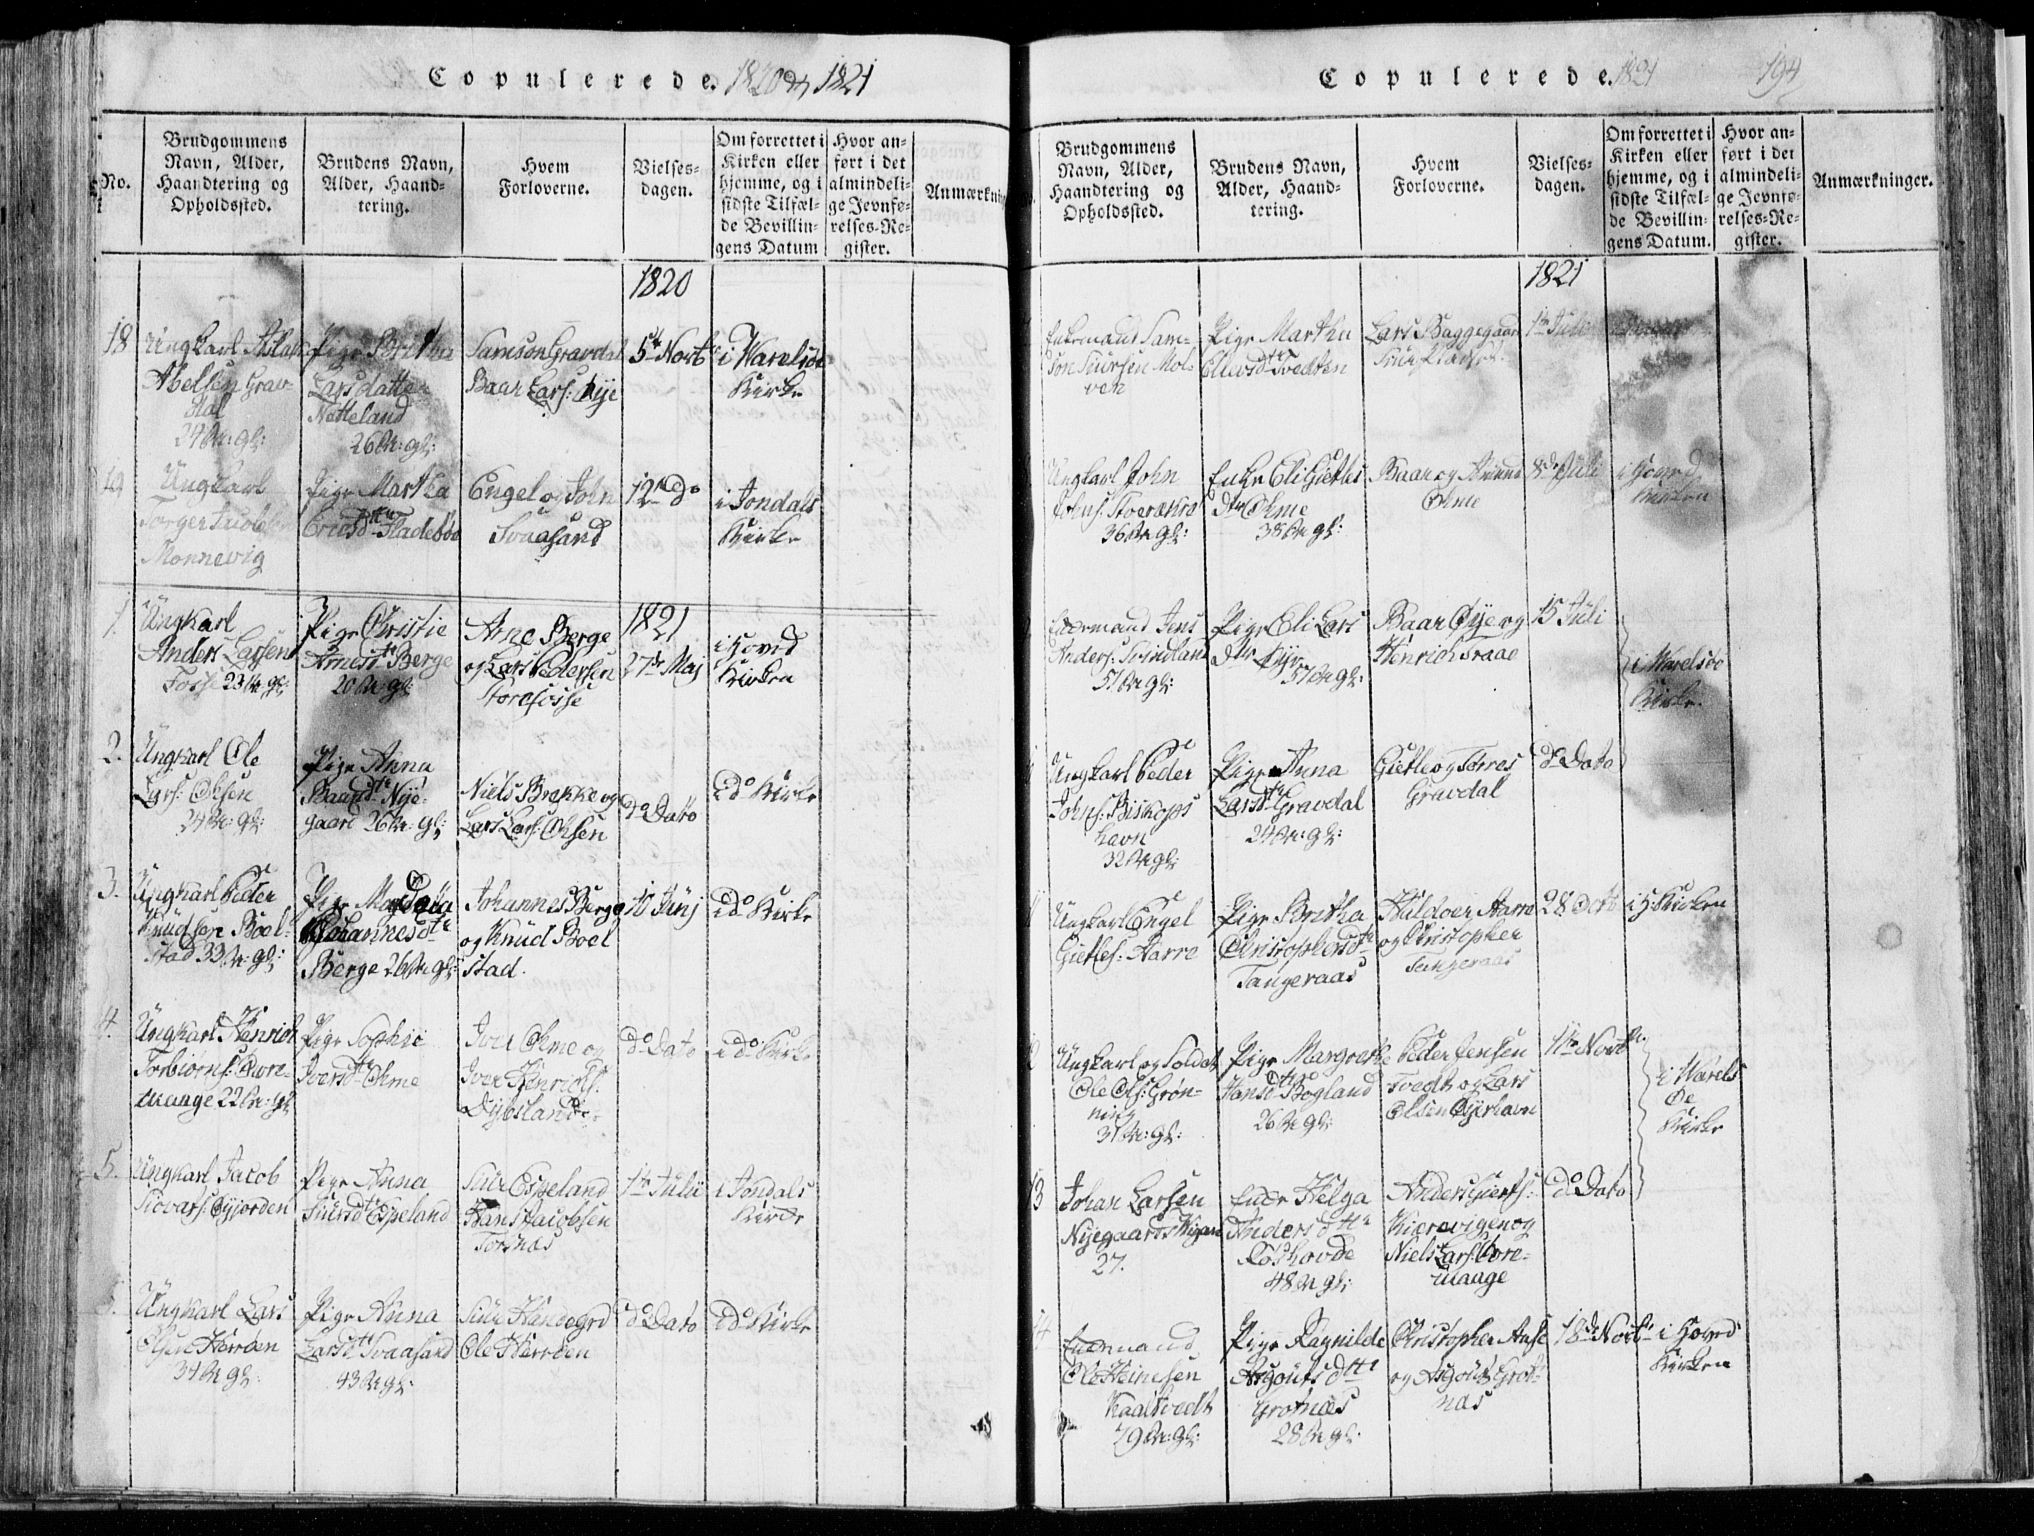 Copulerede. 1820 og 1821
No.
Brudgommens
Navn, Alder,
Haandtering og
Opholdssted.
Brudens Navn,
Alder, Haand-
tering.
Hvem
Forloverne.
Vielses-
dagen.
Om forrettet i
Kirken eller
hjemme, og i
sidste Tilfæl-
de Bevillin-
gens Datum
Hvor an-
ført i det
almindeli-
ge Jevnfø-
relses-Re-
gister.
Anmærknin
1820
18
Ungkarl Aslak
Abelsen Grav
dal
24 Ar: gl:
Pige Britha
Larsdatter
Netteland
26 Ar: gl:
Samson Gravdal
Baar Lars: Øye
5te Novb
i Warelsøe
Kirke
19
Ungkarl
Torger Jacob
Monnevig
Pige Martha
Ericsdtr Fladebøe
Engel og John
Svaasand
12te do
i Jondals
Kirke
1.
Ungkarl
Anders Larsen
Fosse 23 Ar gl:
Pige Christie
Arnesdtr Berge
20 Ar gl:
Arne Berge
og Lars Pedersen
Storefosse
1821
27de Maj
i Hoved
Kirken
2.
Ungkarl Ole
Lars: Ohsen
24 Ar: gl:
Pige Anna
Baardsdtr Nye-
gaard 26 Ar: gl:
Niels Brekke og
Lars Lars: Ohsen
do Dato
i do Kirke
3.
Ungkarl Peder
Knudsen Boel-
stad 33 Ar: gl:
Pige
Johannesdtr
Berge 26 Ar gl:
Johannes Berge
og Knud Boel
stad.
10 Junj
i do Kirke
4.
Ungkarl Henrich
Torbiørns: Øvre-
waage 22 Ar: gl:
Pige Sophie
Iversdtr Ohme
Iver Ohme og
Iver Henrichs:
Dybsland
do Dato
i do Kirke
5.
Ungkarl Jacob
Siovars: Eyjorden
Pige Anna
Siursdtr Espeland
Siur Espeland
Hans Jacobsen
Torsnæs
1te Julii
i Jondals
Kirke
Ungkarl Lars
Olsen Herreen
34 Ar gl:
Pige Anna
Larsdtr Svaasand
43 Ar gl:
Siur Handegrd
Ole Herreen
do Dato
i do Kirke
Copulerede. 1821 194
Brudgommens
Navn, Alder,
Haandtering og
Opholdssted.
Brudens Navn,
Alder, Haand-
tering.
Hvem
Forloverne.
Vielses-
dagen.
Om forrettet i
Kirken eller
hjemme, og i
sidste Tilfæl-
de Bevillin-
gens Datum.
Hvor an-
ført i det
almindeli-
ge Jevnfø-
relses-Re-
gister.
Anmærkninger.
1821
Enkemand Sam-
son Siursen Mol-
ven
Pige Martha
Ellevsdtr Tvedten
Lars Baggegaar
1te Juli
Ungkarl John
Johns:
36 Ar gl:
Enke Eli Gietles
Dtr Ohme
38 Ar gl:
Baar og
Ohme
8de Juli
i Hoved
Kirken
Enkemand Jens
Anders:
51 Ar gl:
Pige Eli Lars
Dtr Øye
37 Ar gl:
Baar Øye og
Henrich Traae
15 Juli
i Warelsøe
Kirke.
Ungkarl Peder
Johns: Biskops
havn
32 Ar gl:
Pige Anna
Larsdtr Gravdal
24 Ar: gl:
Gietle og Torres
Gravdal
do Dato
Ungkarl Engel
Gietles: Aarre
Pige Britha
Christophersdtr
Tangeraas
Haldoer Aarre
og Christopher
Tangeraas
28 Octb
i H: Kirken
Ungkarl og Soldat
Ole Ols: Grøn-
ning
31 Ar: gl:
Pige Margrethe
Hansdtr Bogland
26 Ar gl:
Peder Jensen
Tvedt og Lars
Olsen Øyerhavn
11te Novb
i Warels
Øe
Kirke
13
Johan Larsen
Nyegaards
27.
Enke Helga
Andersdttr
Roshovde
48 Ar gl:
Anders
Kierevigen og
Niels Lars: Øvre-
waage
do Dato
14
Enkemand
Ole Heinesen
Kaaltvedt
79 Ar: gl:
Pige Ragnilde
Asgoutsdttr
Grotnæs
28 Ar gl:
Christopher Aase
og Asgout Grot-
næs
18de Novb
i Hoved
Kirken